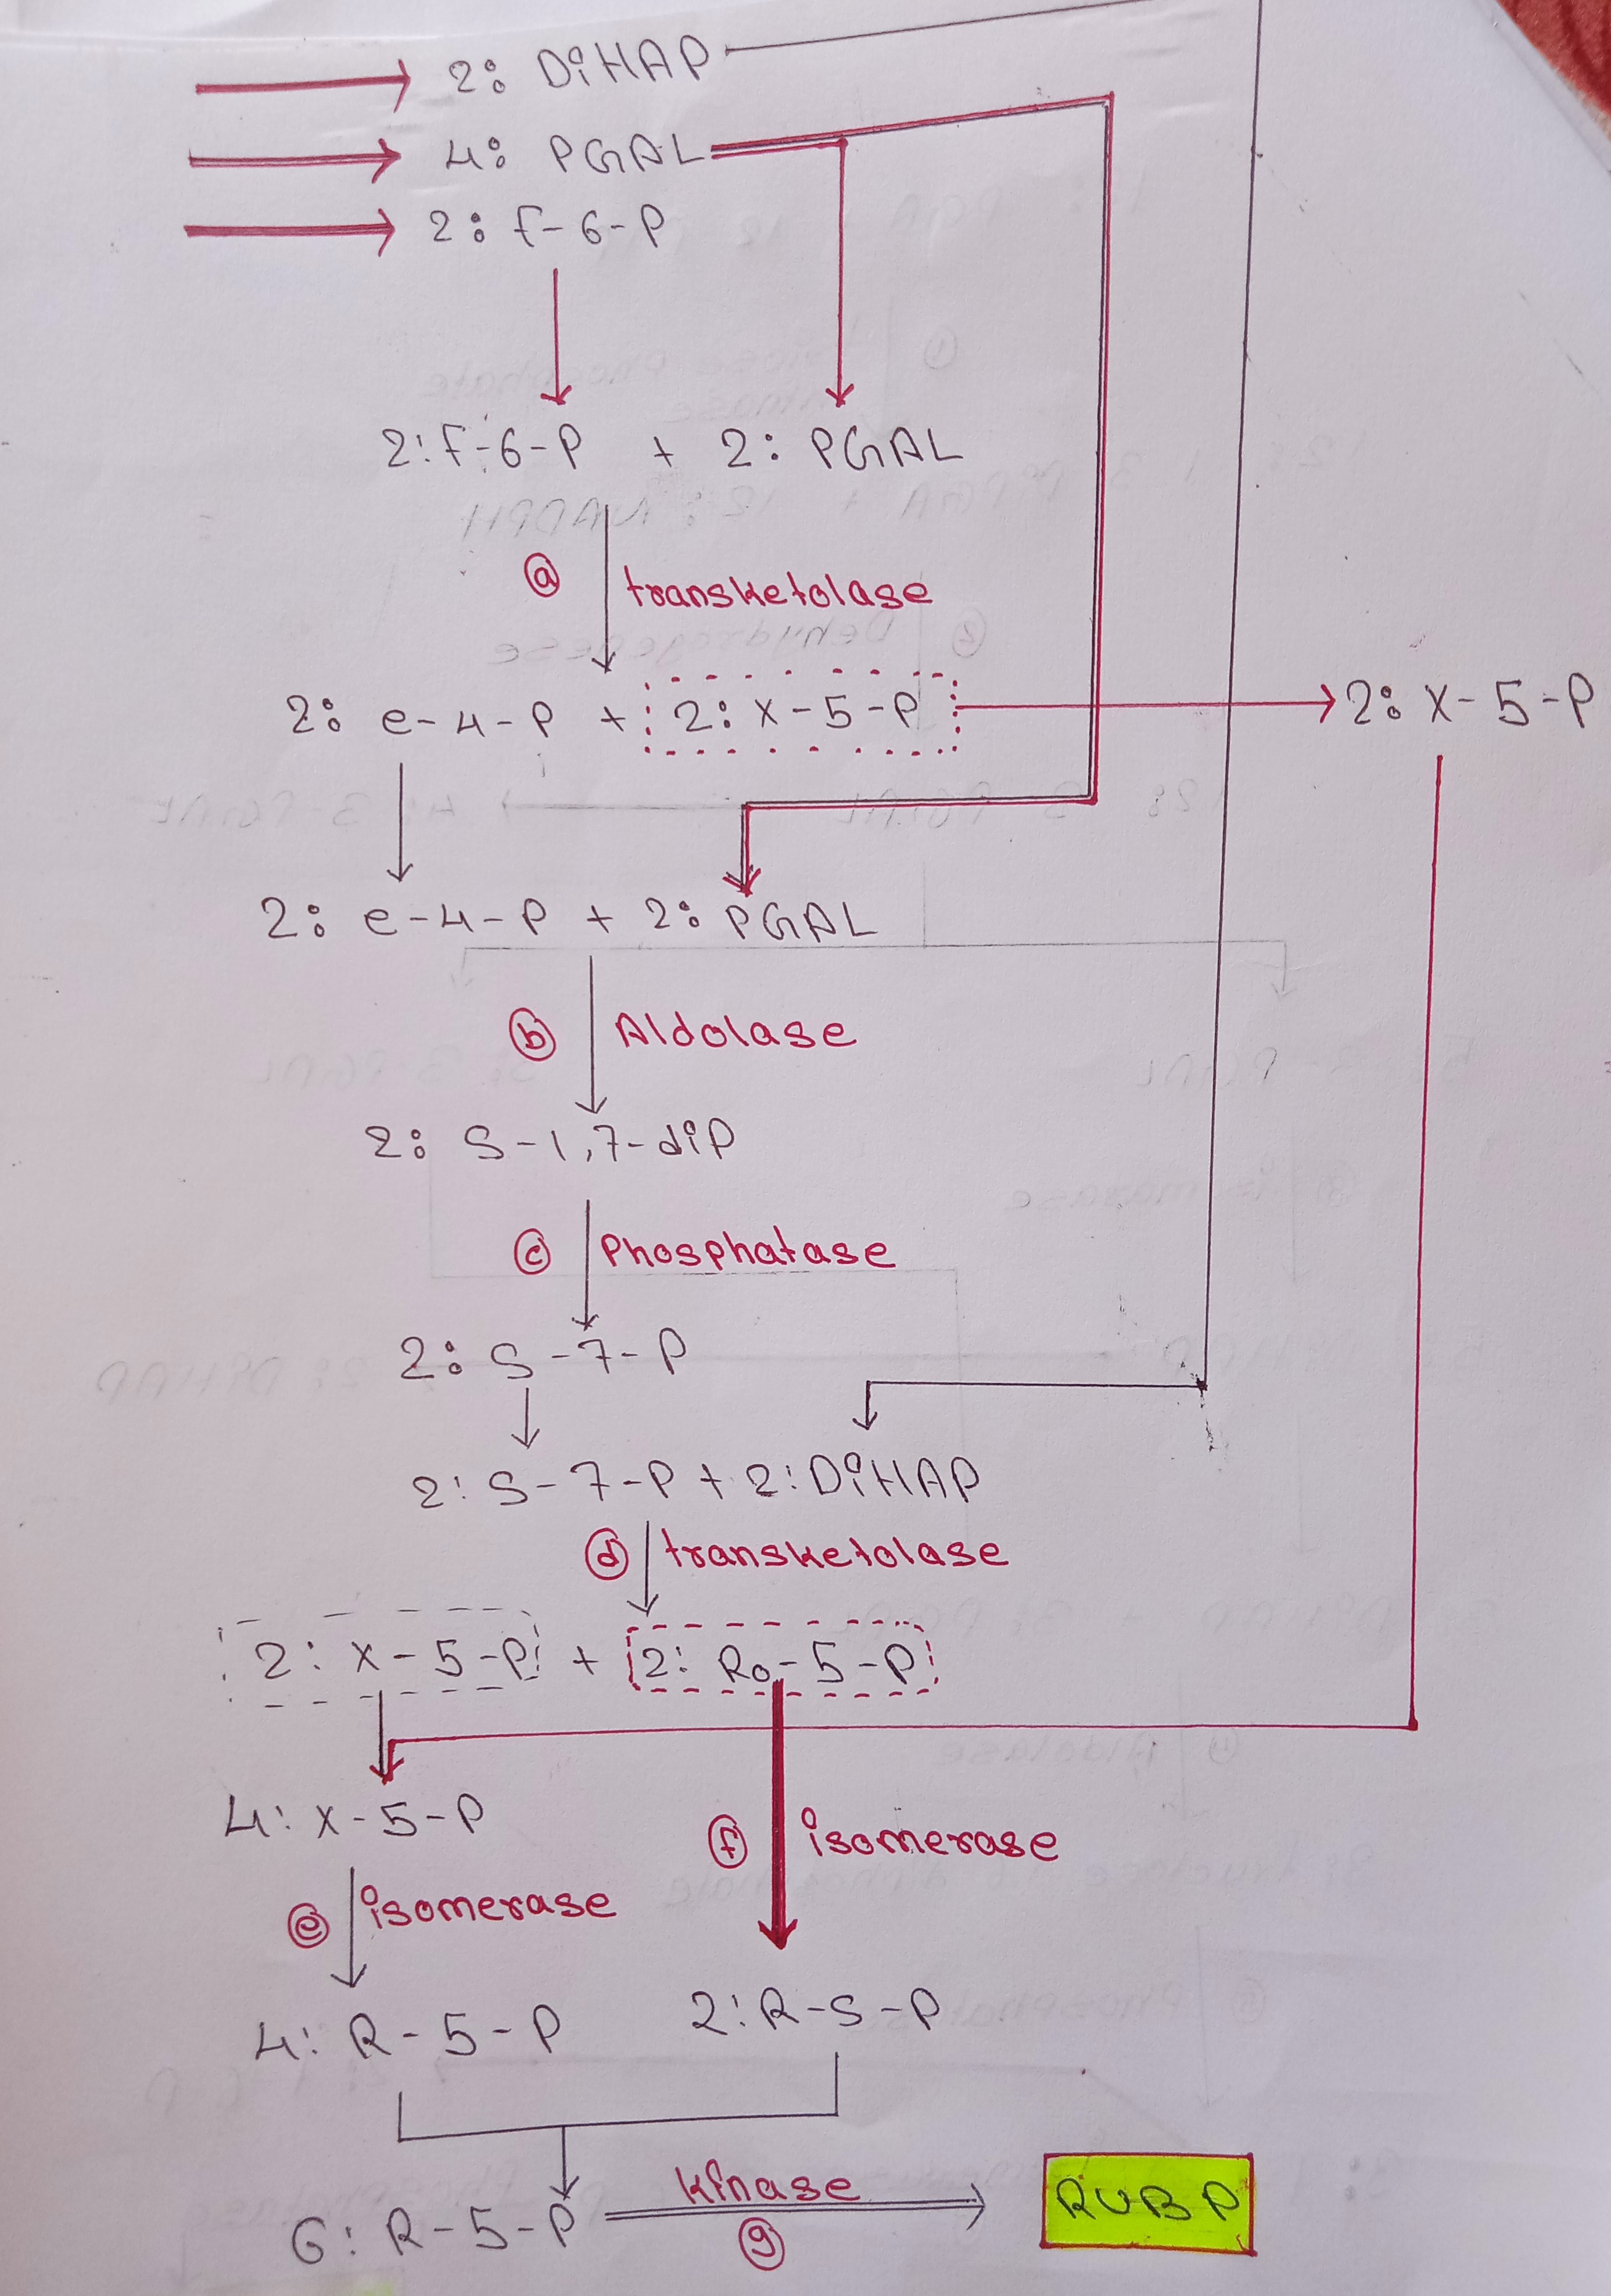 2: DiHAP
4: PGAL
2: f-6-P
2: f-6-P + 2: PGAL
ⓐ transketolase
2: e-4-P + 2: x-5-P
2: x-5-P
2: e-4-P + 2: PGAL
ⓑ Aldolase
2: S-1,7-diP
ⓒ Phosphatase
2: S-7-P
2: S-7-P + 2: DiHAP
ⓓ transketolase
2: x-5-P + 2: Ro-5-P
4: x-5-P
ⓕ isomerase
ⓔ isomerase
4: R-5-P 2: R-S-P
kinase
6: R-5-P RUBP
ⓖ